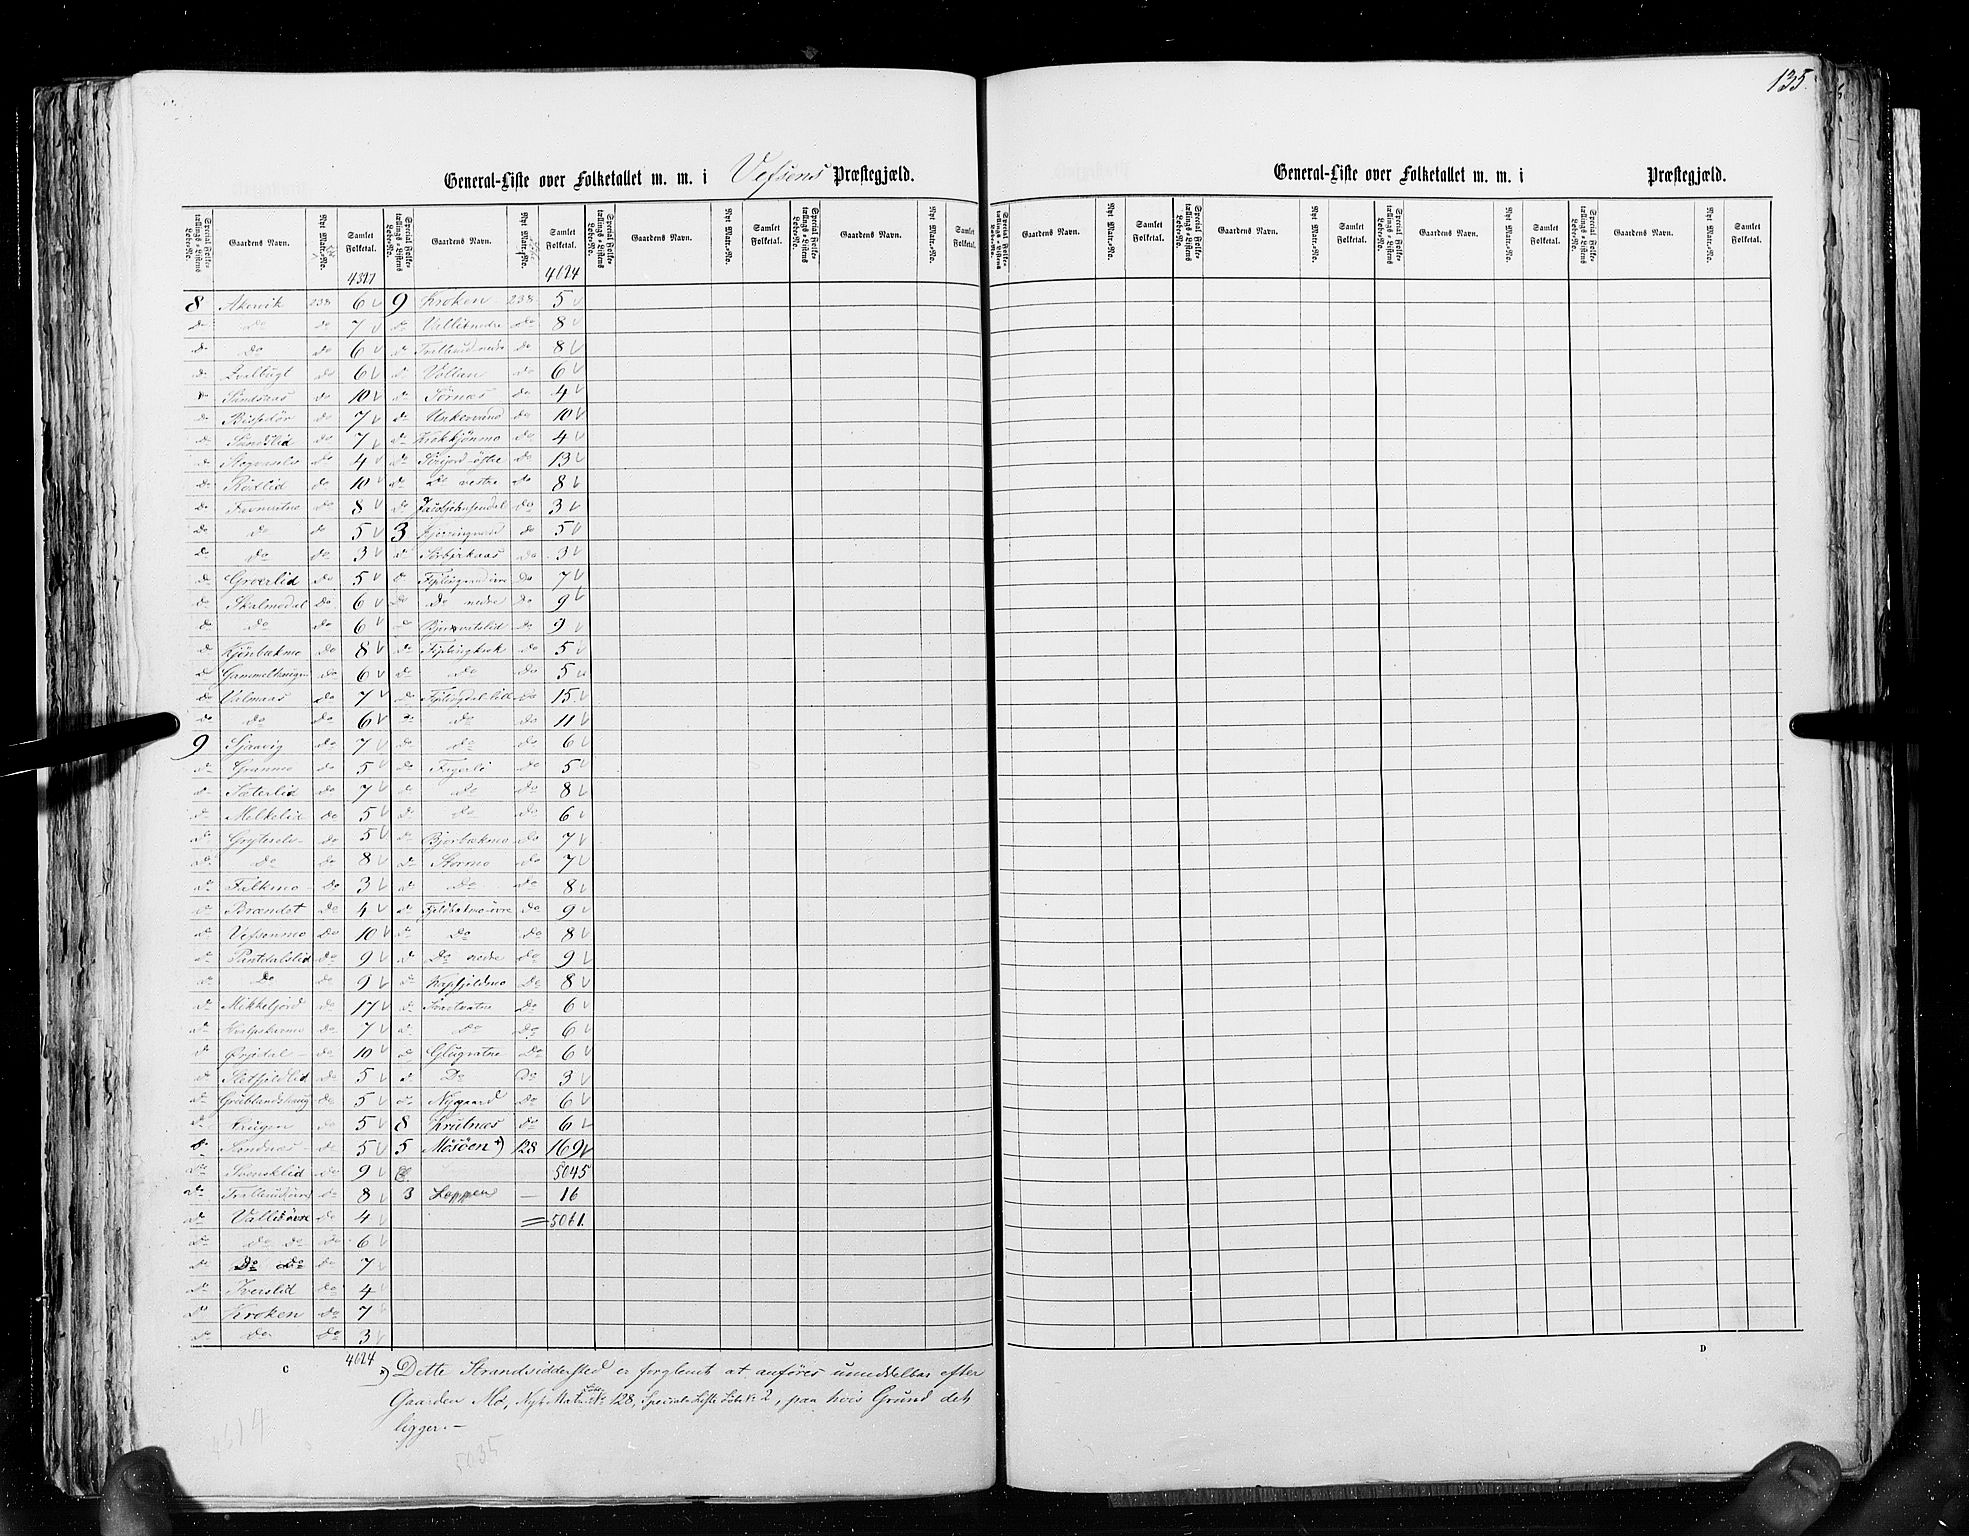 135.
General-Liste over Folketallet m. m. i Vefsens Præstegjæld.
Special Folketællings-Listens Løbe-No. Gaardens Navn. Nyt Matr.-No. Samlet Folketal. Special Folketællings-Listens Løbe-No. Gaardens Navn. Nyt Matr.-No. Samlet Folketal. Special Folketællings-Listens Løbe-No. Gaardens Navn. Nyt Matr.-No. Samlet Folketal. Special Folketællings-Listens Løbe-No. Gaardens Navn. Nyt Matr.-No. Samlet Folketal.
4317 4624
8 Akervik 238 6 9 Kroken 238 5
do do do 7 do Vallienedre do 8
do do do 6 do nedre do 8
do do 6 do Vollan do 6
do Sandaas do 10 do Sørnæs do 4
do do 7 do Unkervand do 10
do Sandslid do 7 do Krokkjønmo do 4
do do 4 do østre do 13
do Rødlid do 10 do do vestre do 8
do do 8 do do 3
do do do 5 3 do 5
do do do 3 do Sørbirkaas do 3
do Groerlid do 5 do Fiplingvand øvre do 7
do Skalmodal do 6 do do nedre do 9
do do do 6 do do 9
do Kjønbækmo do 8 do Fiplingkrok do 5
do do 6 do do do 5
do Valmaas do 7 do Fiplingdal lille do 15
do do do 6 do do do 11
9 Sjaavig do 7 do do do 6
do Granmo do 5 do do 5
do Sæterlid do 7 do do do 8
do Mølkelid do 5 do do do 6
do Gryteselv do 5 do Bjorbækmo do 7
do do do 8 do Stormo do 7
do Falkmo do 3 do do do 8
do Brændet do 4 do øvre do 9
do Vefsenmo do 10 do do do 8
do Pantdalslid do 9 do do nedre do 9
do do do 9 do Kapfjeldmo do 8
do Mikkeljord do 17 do do 6
do do 7 do do do 6
do Ørjedal do 10 do Glugvatne do 6
do do 5 do do do 3
do Grublandshaug do 5 do Nygaard do 6
do do 5 8 Krutnæs do 6
do do 5 5 Mosøen *) 128 169
do Svensklid do 9 5045
do øvre do 8 3 Lapper — 16
do Valliøvre do 4 5061.
do do do do 6
do do do do 7
do Iverslid do 4
do Kroken do 7
do do do 3
4624
C
*) Dette Strandsiddersted er forglemt at anføres umiddelbar efter
Gaarden Mo, Nyt Matr. Løbe No 128, Special-Liste Løbe No 2, paa hvis Grund det
ligger.—
4617
5035
General-Liste over Folketallet m. m. i Præstegjæld.
Special Folketællings-Listens Løbe-No. Gaardens Navn. Nyt Matr.-No. Samlet Folketal. Special Folketællings-Listens Løbe-No. Gaardens Navn. Nyt Matr.-No. Samlet Folketal. Special Folketællings-Listens Løbe-No. Gaardens Navn. Nyt Matr.-No. Samlet Folketal. Special Folketællings-Listens Løbe-No. Gaardens Navn. Nyt Matr.-No. Samlet Folketal.
D